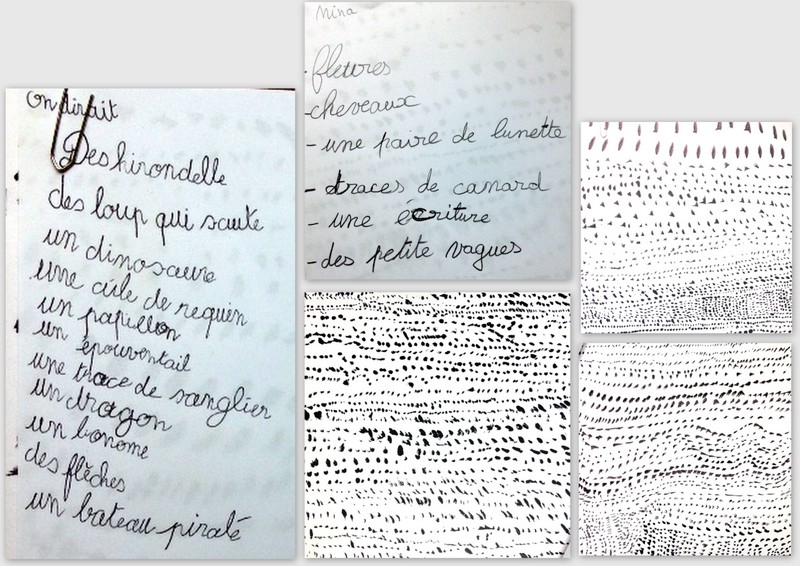 On dirait
Des hirondelle
des loup qui saute
un dinosaure
une cule de requin
un papillon
un épouventail
une trace de sanglier
un dragon
un bonome
des flèches
un bateau piraté
Nina
- fleures
- cheveaux
- une paire de lunette
- traces de canard
- une écriture
- des petite vagues